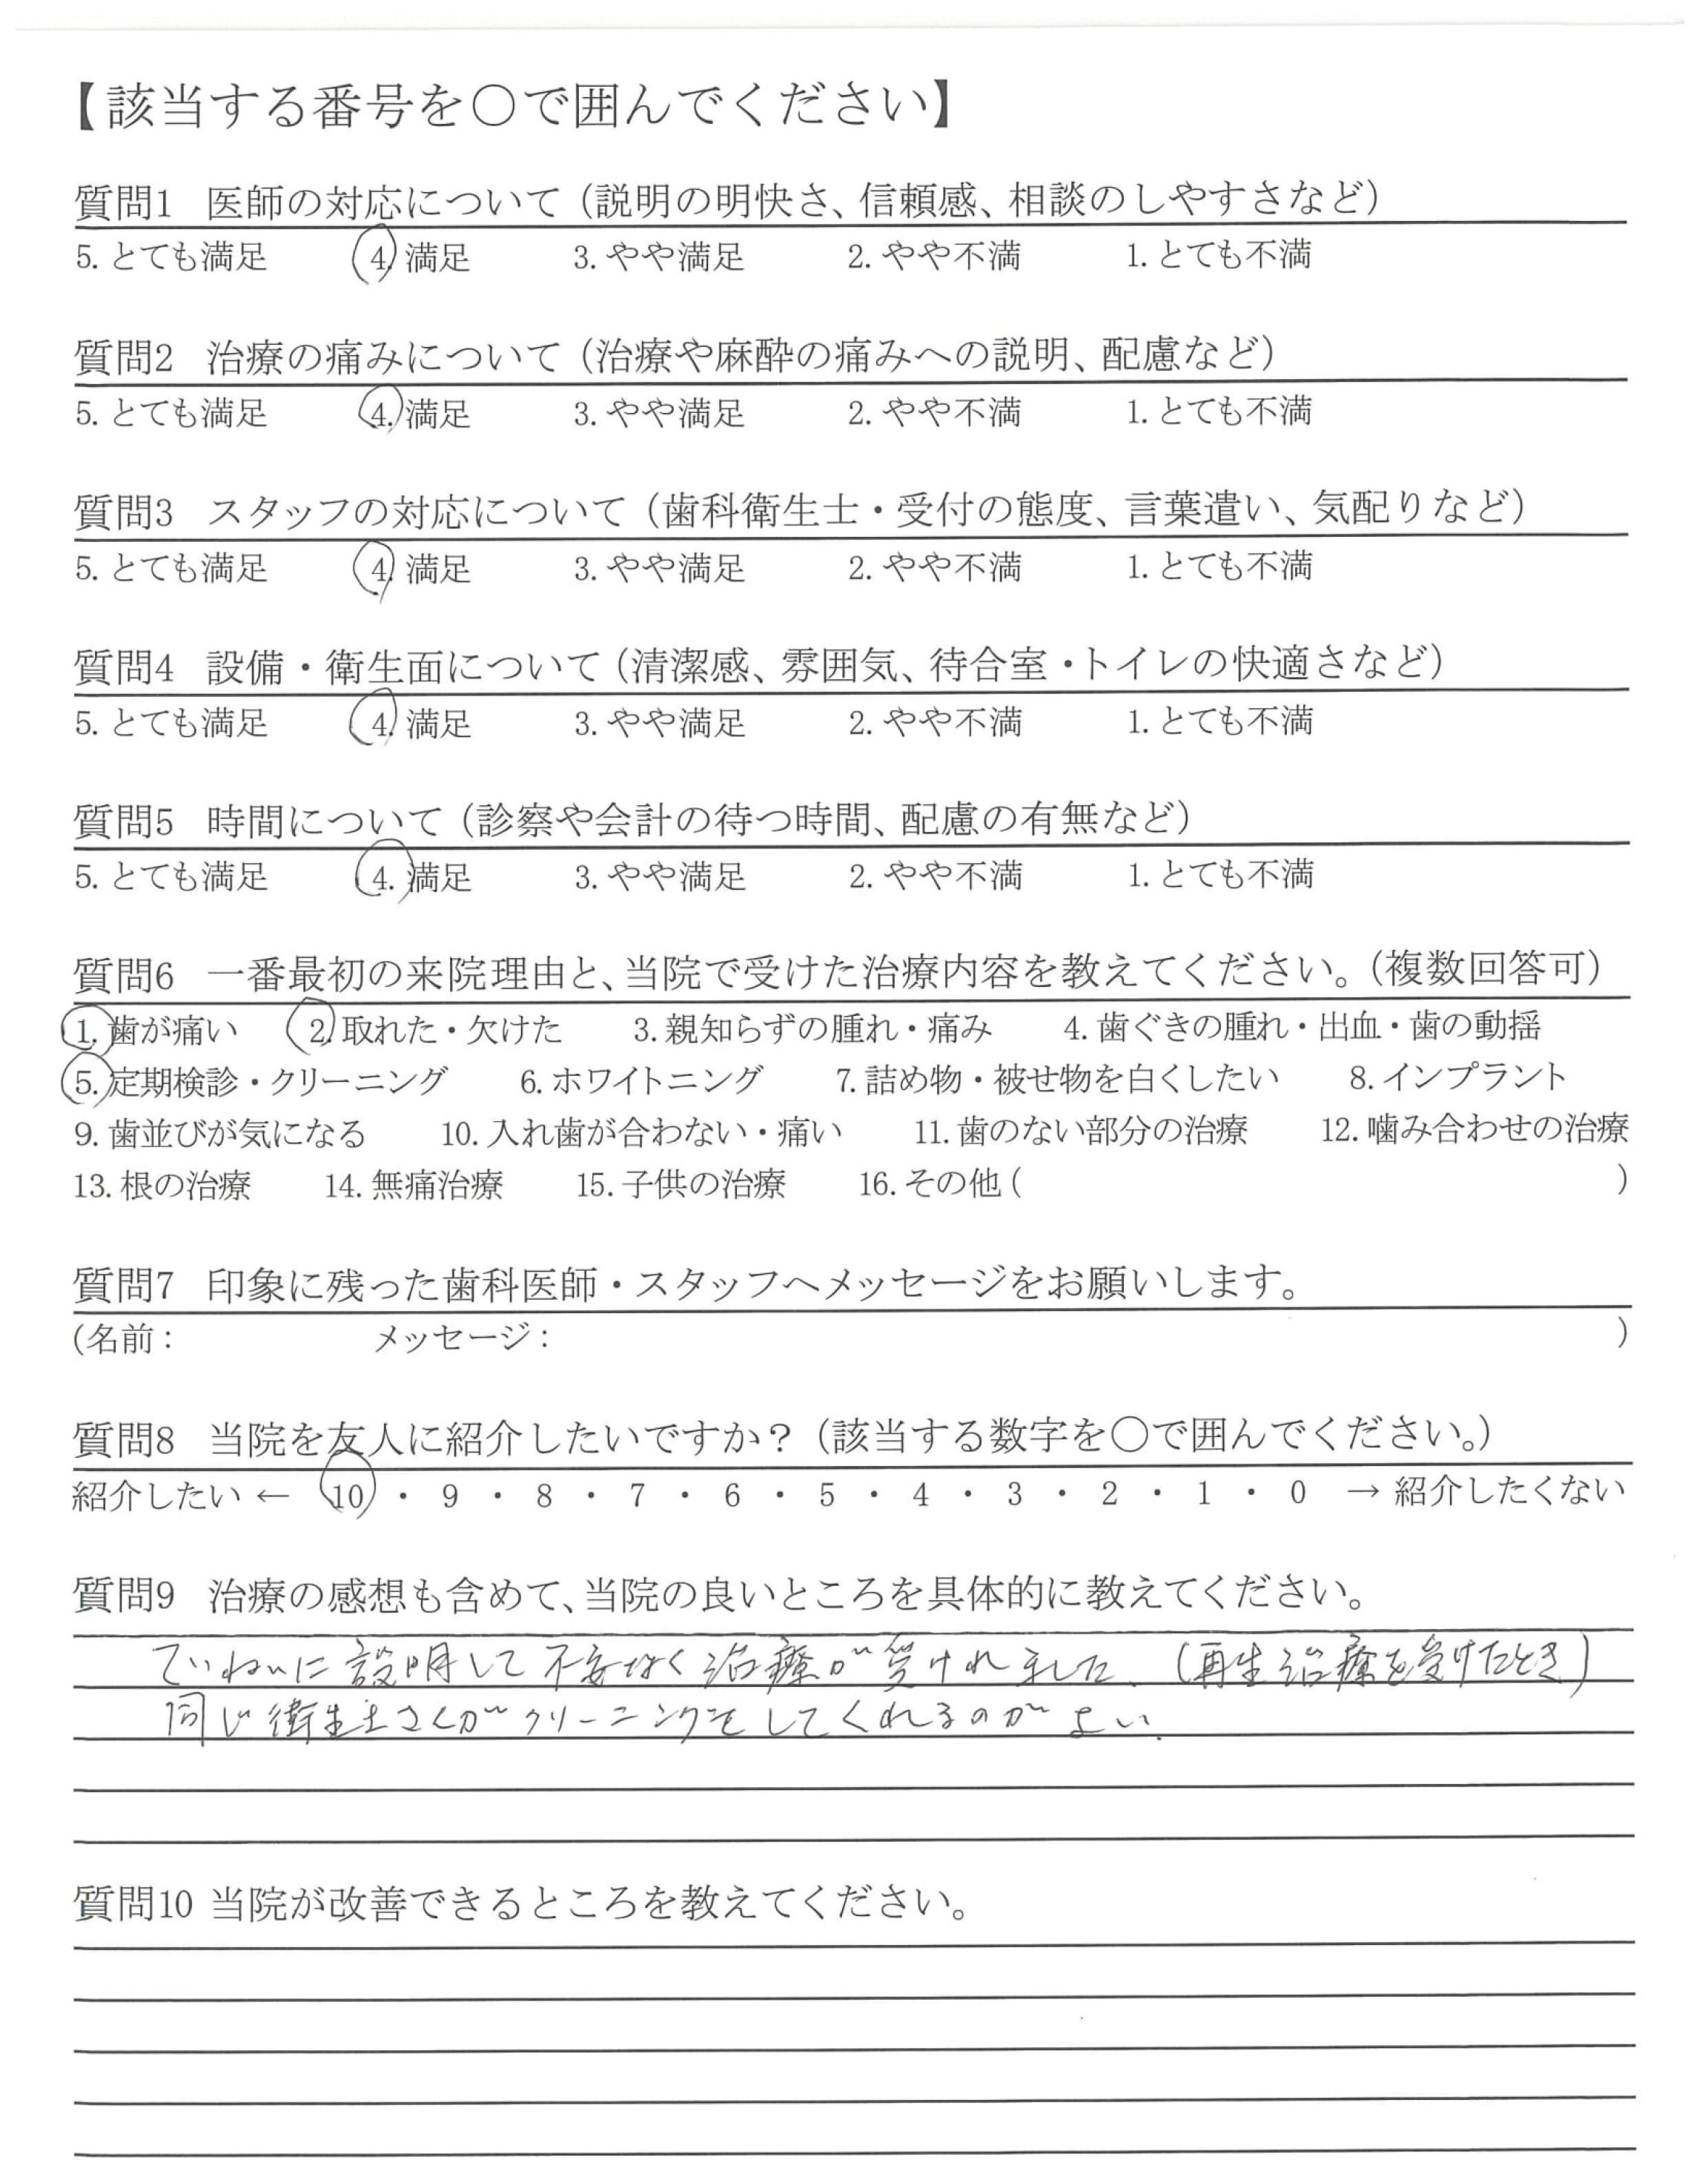 【該当する番号を○で囲んでください】
質問1 医師の対応について（説明の明快さ、信頼感、相談のしやすさなど）
5. とても満足 4. 満足 3. やや満足 2. やや不満 1. とても不満
質問2 治療の痛みについて（治療や麻酔の痛みへの説明、配慮など）
5. とても満足 4. 満足 3. やや満足 2. やや不満 1. とても不満
質問3 スタッフの対応について（歯科衛生士・受付の態度、言葉遣い、気配りなど）
5. とても満足 4. 満足 3. やや満足 2. やや不満 1. とても不満
質問4 設備・衛生面について（清潔感、雰囲気、待合室・トイレの快適さなど）
5. とても満足 4. 満足 3. やや満足 2. やや不満 1. とても不満
質問5 時間について（診察や会計の待つ時間、配慮の有無など）
5. とても満足 4. 満足 3. やや満足 2. やや不満 1. とても不満
質問6 一番最初の来院理由と、当院で受けた治療内容を教えてください。（複数回答可）
1. 歯が痛い 2. 取れた・欠けた 3. 親知らずの腫れ・痛み 4. 歯ぐきの腫れ・出血・歯の動揺
5. 定期検診・クリーニング 6. ホワイトニング 7. 詰め物・被せ物を白くしたい 8. インプラント
9. 歯並びが気になる 10. 入れ歯が合わない・痛い 11. 歯のない部分の治療 12. 噛み合わせの治療
13. 根の治療 14. 無痛治療 15. 子供の治療 16. その他 ( )
質問7 印象に残った歯科医師・スタッフへメッセージをお願いします。
(名前： メッセージ： )
質問8 当院を友人に紹介したいですか？（該当する数字を○で囲んでください。）
紹介したい ← 10 ・ 9 ・ 8 ・ 7 ・ 6 ・ 5 ・ 4 ・ 3 ・ 2 ・ 1 ・ 0 → 紹介したくない
質問9 治療の感想も含めて、当院の良いところを具体的に教えてください。
ていねいに説明して不安なく治療が受けれました。（再生治療を受けたとき）
同じ衛生士さんがクリーニングをしてくれるのがよい。
質問10 当院が改善できるところを教えてください。